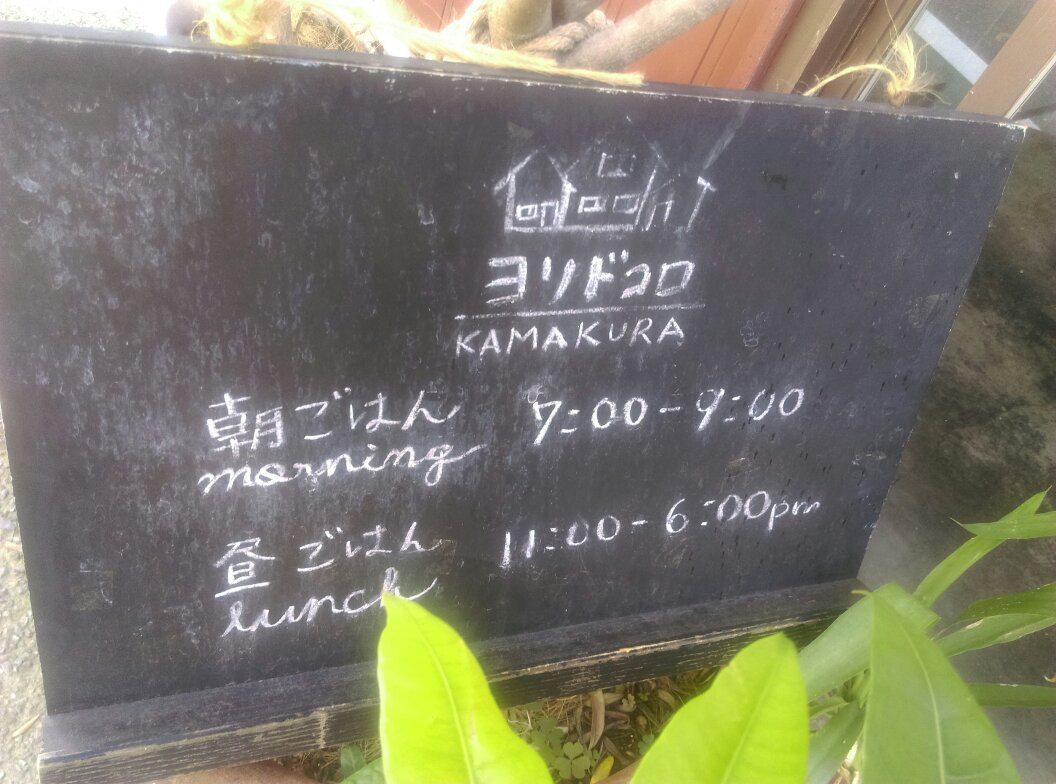 ヨリドコロ
KAMAKURA
朝ごはん 7:00-9:00
morning
昼ごはん 11:00-6:00pm
lunch